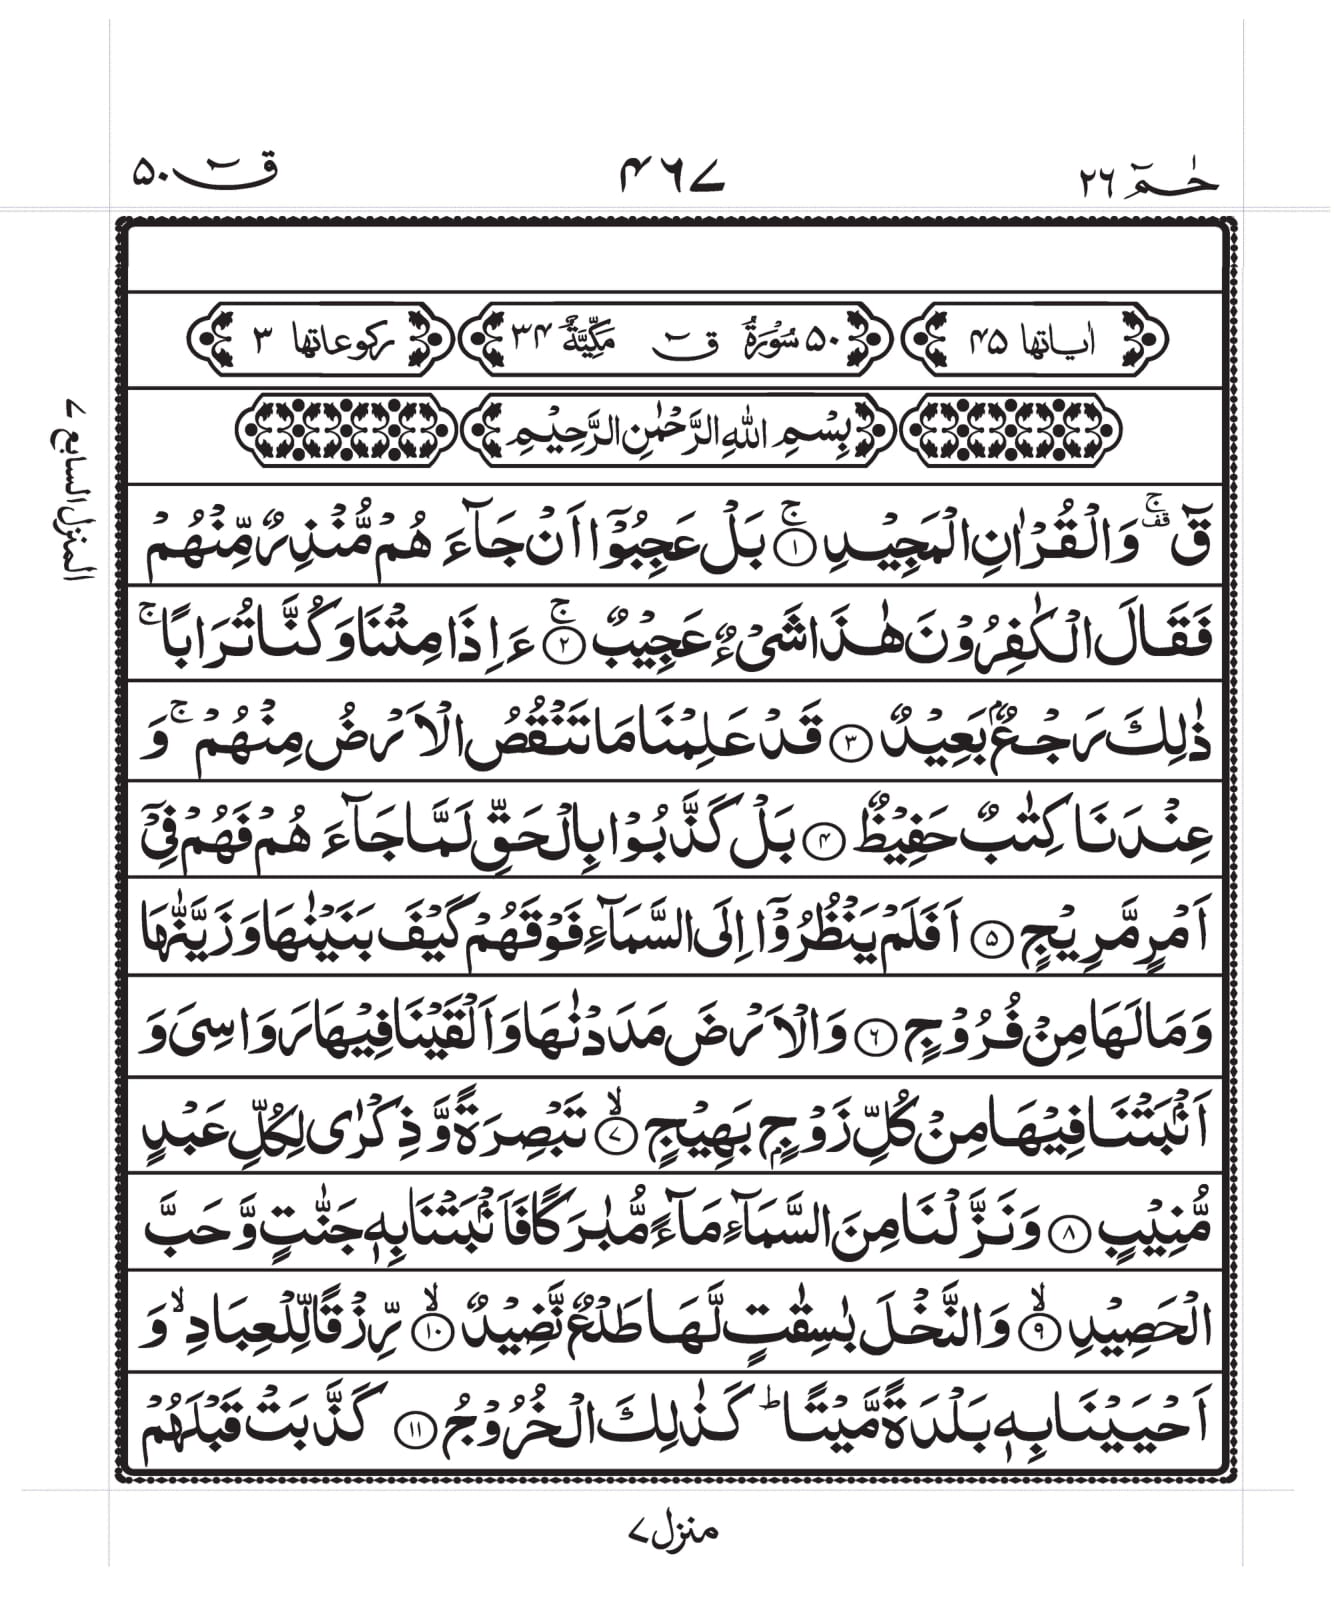 حٰمٓ ۲۶
۴۶۷
قٓ ۵۰
اٰیاتها ۴۵
۵۰ سُوْرَةُ قٓ مَكِّيَّةٌ ۳۴
ركوعاتها ۳
بِسْمِ اللهِ الرَّحْمٰنِ الرَّحِيْمِ
المنزل السابع ۷
قٓ ۚ قف وَالْقُرْاٰنِ الْمَجِيْدِ ۚ ﴿۱﴾ بَلْ عَجِبُوْٓا اَنْ جَآءَ هُمْ مُّنْذِرٌ مِّنْهُمْ
فَقَالَ الْكٰفِرُوْنَ هٰذَا شَیْءٌ عَجِيْبٌ ۚ ﴿۲﴾ ءَاِذَا مِتْنَا وَكُنَّا تُرَابًا ۚ
ذٰلِكَ رَجْعٌۢ بَعِيْدٌ ﴿۳﴾ قَدْ عَلِمْنَا مَا تَنْقُصُ الْاَرْضُ مِنْهُمْ ۚ وَ
عِنْدَنَا كِتٰبٌ حَفِيْظٌ ﴿۴﴾ بَلْ كَذَّبُوْا بِالْحَقِّ لَمَّا جَآءَ هُمْ فَهُمْ فِیْٓ
اَمْرٍ مَّرِيْجٍ ﴿۵﴾ اَفَلَمْ يَنْظُرُوْٓا اِلَی السَّمَآءِ فَوْقَهُمْ كَيْفَ بَنَيْنٰهَا وَزَيَّنّٰهَا
وَمَا لَهَا مِنْ فُرُوْجٍ ﴿۶﴾ وَالْاَرْضَ مَدَدْنٰهَا وَاَلْقَيْنَا فِيْهَا رَوَاسِیَ وَ
اَنْۢبَتْنَا فِيْهَا مِنْ كُلِّ زَوْجٍۭ بَهِيْجٍ ۙ ﴿۷﴾ تَبْصِرَةً وَّذِكْرٰی لِكُلِّ عَبْدٍ
مُّنِيْبٍ ﴿۸﴾ وَنَزَّلْنَا مِنَ السَّمَآءِ مَآءً مُّبٰرَكًا فَاَنْۢبَتْنَا بِهٖ جَنّٰتٍ وَّحَبَّ
الْحَصِيْدِ ۙ ﴿۹﴾ وَالنَّخْلَ بٰسِقٰتٍ لَّهَا طَلْعٌ نَّضِيْدٌ ۙ ﴿۱۰﴾ رِّزْقًا لِّلْعِبَادِ ۙ وَ
اَحْيَيْنَا بِهٖ بَلْدَةً مَّيْتًا ؕ كَذٰلِكَ الْخُرُوْجُ ﴿۱۱﴾ كَذَّبَتْ قَبْلَهُمْ
منزل ۷